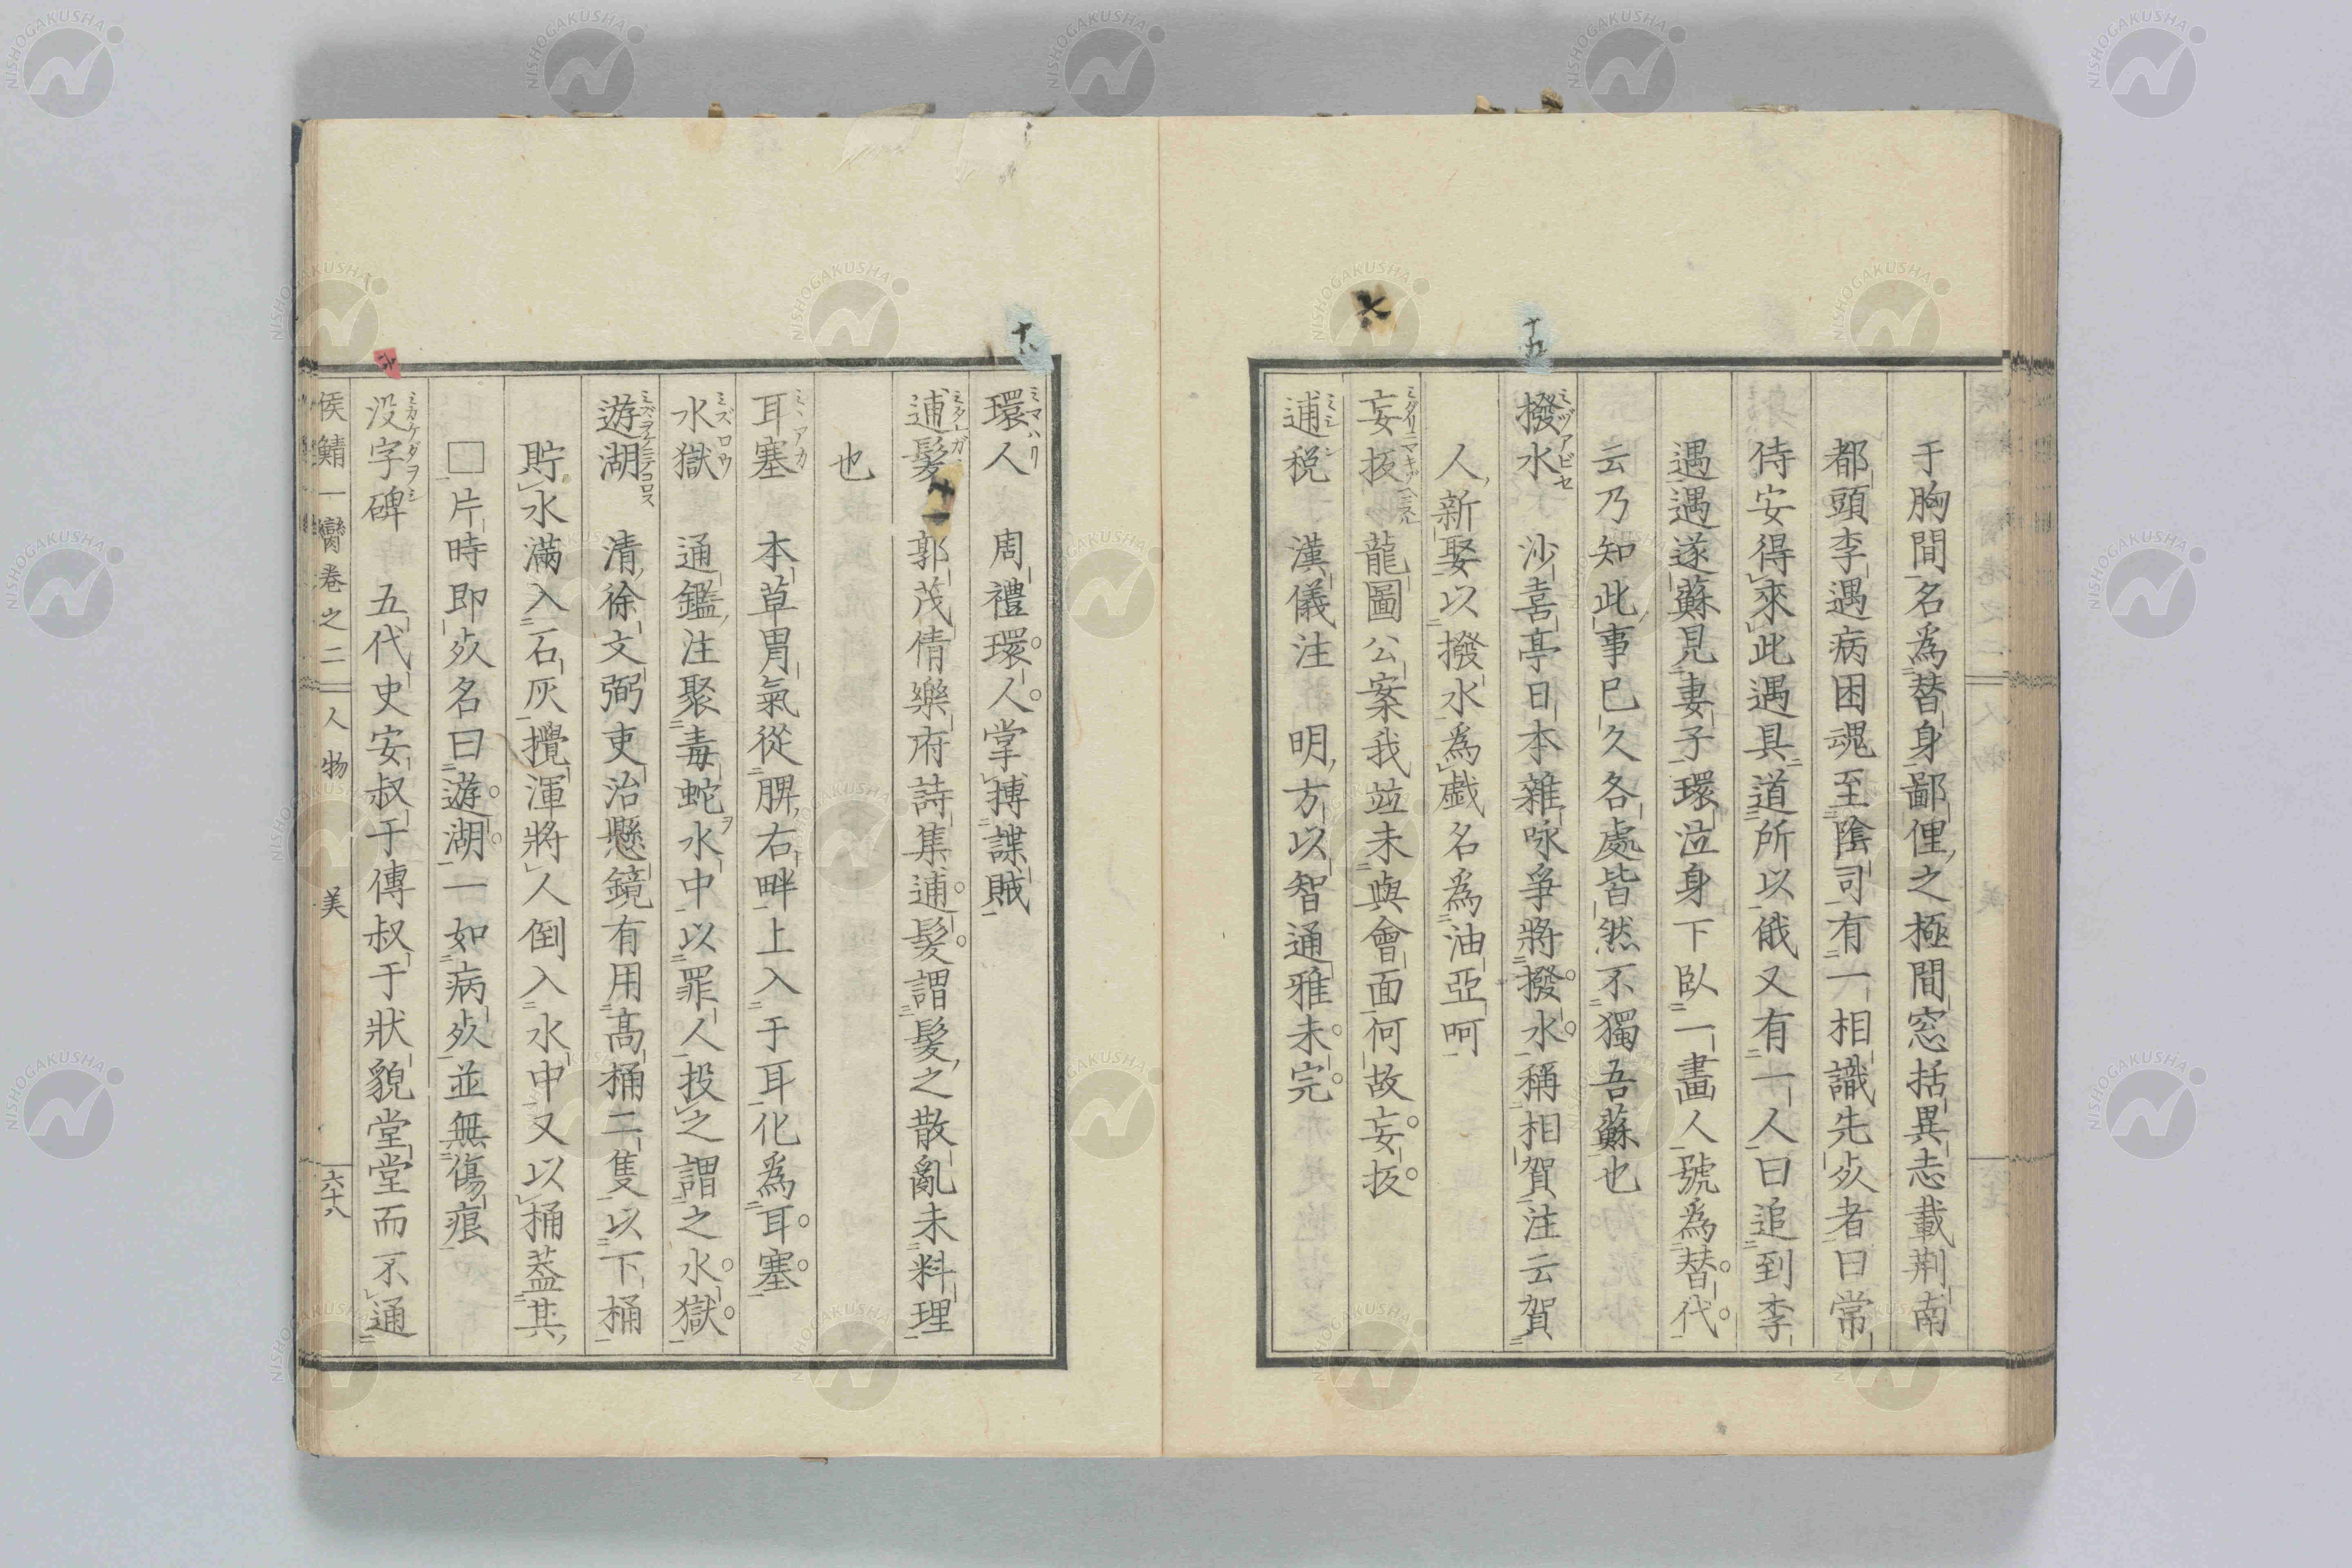 于胸間名為替身鄙俚之極間窓括異志載荆南
都頭李遇病困魂至陰司有一相識先死者曰常
侍安得來此遇具道所以俄又有一人曰追到李
遇遇遂蘇見妻子環泣身下臥一畫人號為替代
云乃知此事巳久各處皆然不獨吾蘇也
撥水 沙喜亭日本雜咏爭將撥水稱相賀注云賀
ミヅアビセ
人新娶以撥水為戯名為油亞呵
妄扳 龍圖公案我竝未與會面何故妄扳
逋税 漢儀注 明方以智通雅未完
環人 周禮環人掌搏諜賊
ミマハリ
逋髪 郭茂倩樂府詩集逋髪謂髪之散亂未料理
也
耳塞 本草胃氣從脾右畔上入于耳化為耳塞
ミヽアカ
水獄 通鑑注聚毒蛇水中以罪人投之謂之水獄
ミズロウ
遊湖 清徐文弼吏治懸鏡有用高桶二隻以下桶
貯水滿入石灰攪渾將人倒入水中又以桶蓋其
□片時即死名曰遊湖一如病死並無傷痕
没字碑 五代史安叔于傳叔于狀貌堂堂而不通
侯鯖一臠卷之二 人物 美 六十八
十五
六
十六
十一